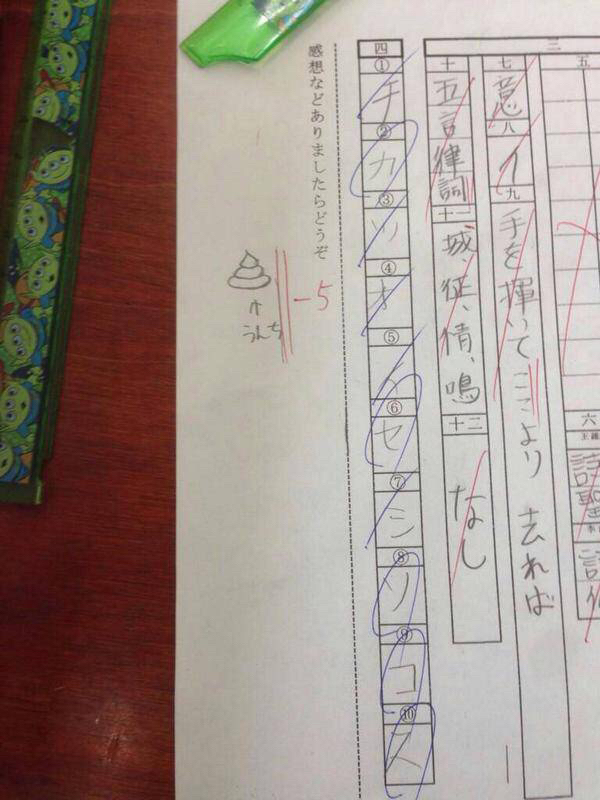 三
五
六
七 意 八 イ 九 手を揮いてここより去れば
十 五言律詞 十一 城、征、情、鳴 十二 なし
四 ① チ ② カ ③ ツ ④ オ ⑤ ⑥ セ ⑦ シ ⑧ ソ ⑨ コ ⑩ ス
感想などありましたらどうぞ
-5
うんち